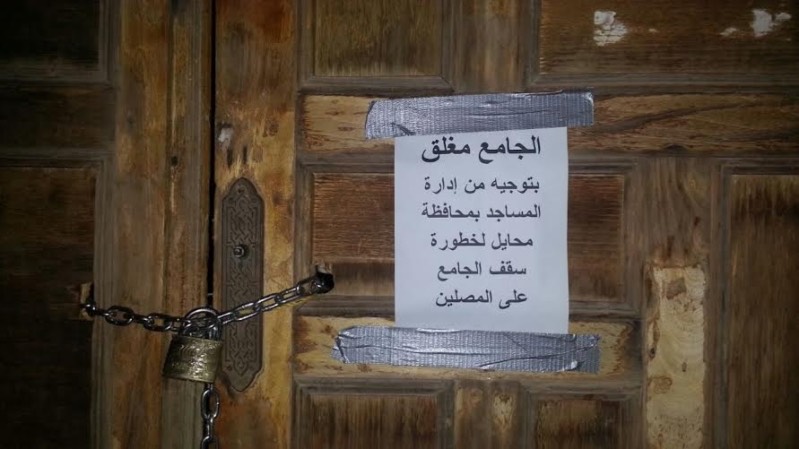 الجامع مغلق
بتوجيه من إدارة
المساجد بمحافظة
محايل لخطورة
سقف الجامع
على المصلين